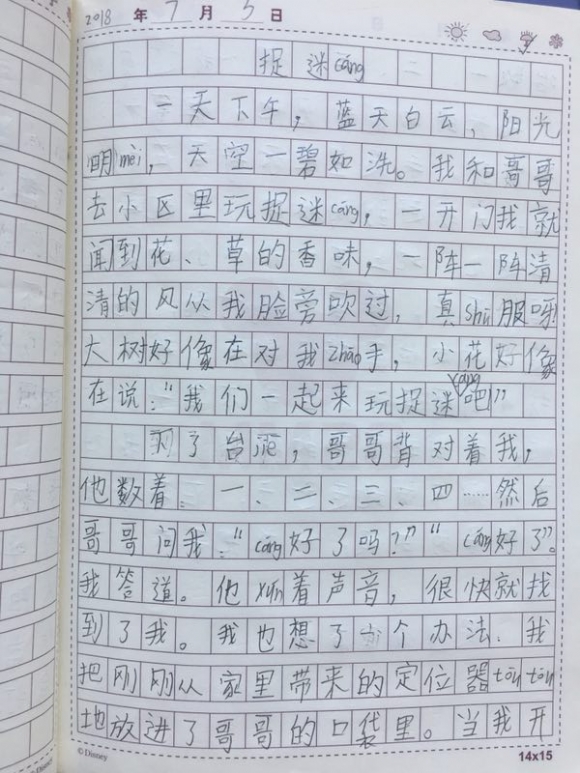 2018 年 7 月 5 日
捉迷cáng
一天下午，蓝天白云、阳光
明mèi，天空一碧如洗。我和哥哥
去小区里玩捉迷cáng，一开门我就
闻到花、草的香味，一阵一阵清
清的风从我脸旁吹过，真shū服呀!
大树好像在对我zhāo手，小花好像
在说：“我们一起来玩捉迷cáng吧!”
到了台，哥哥背对着我，
他数着：一、二、三、四……然后
哥哥问我：“cáng好了吗？”“cáng好了”。
我答道。他xún着声音，很快就找
到了我。我也想了个办法，我
把刚刚从家里带来的定位器tōu tōu
地放进了哥哥的口袋里。当我开
©Disney
14x15